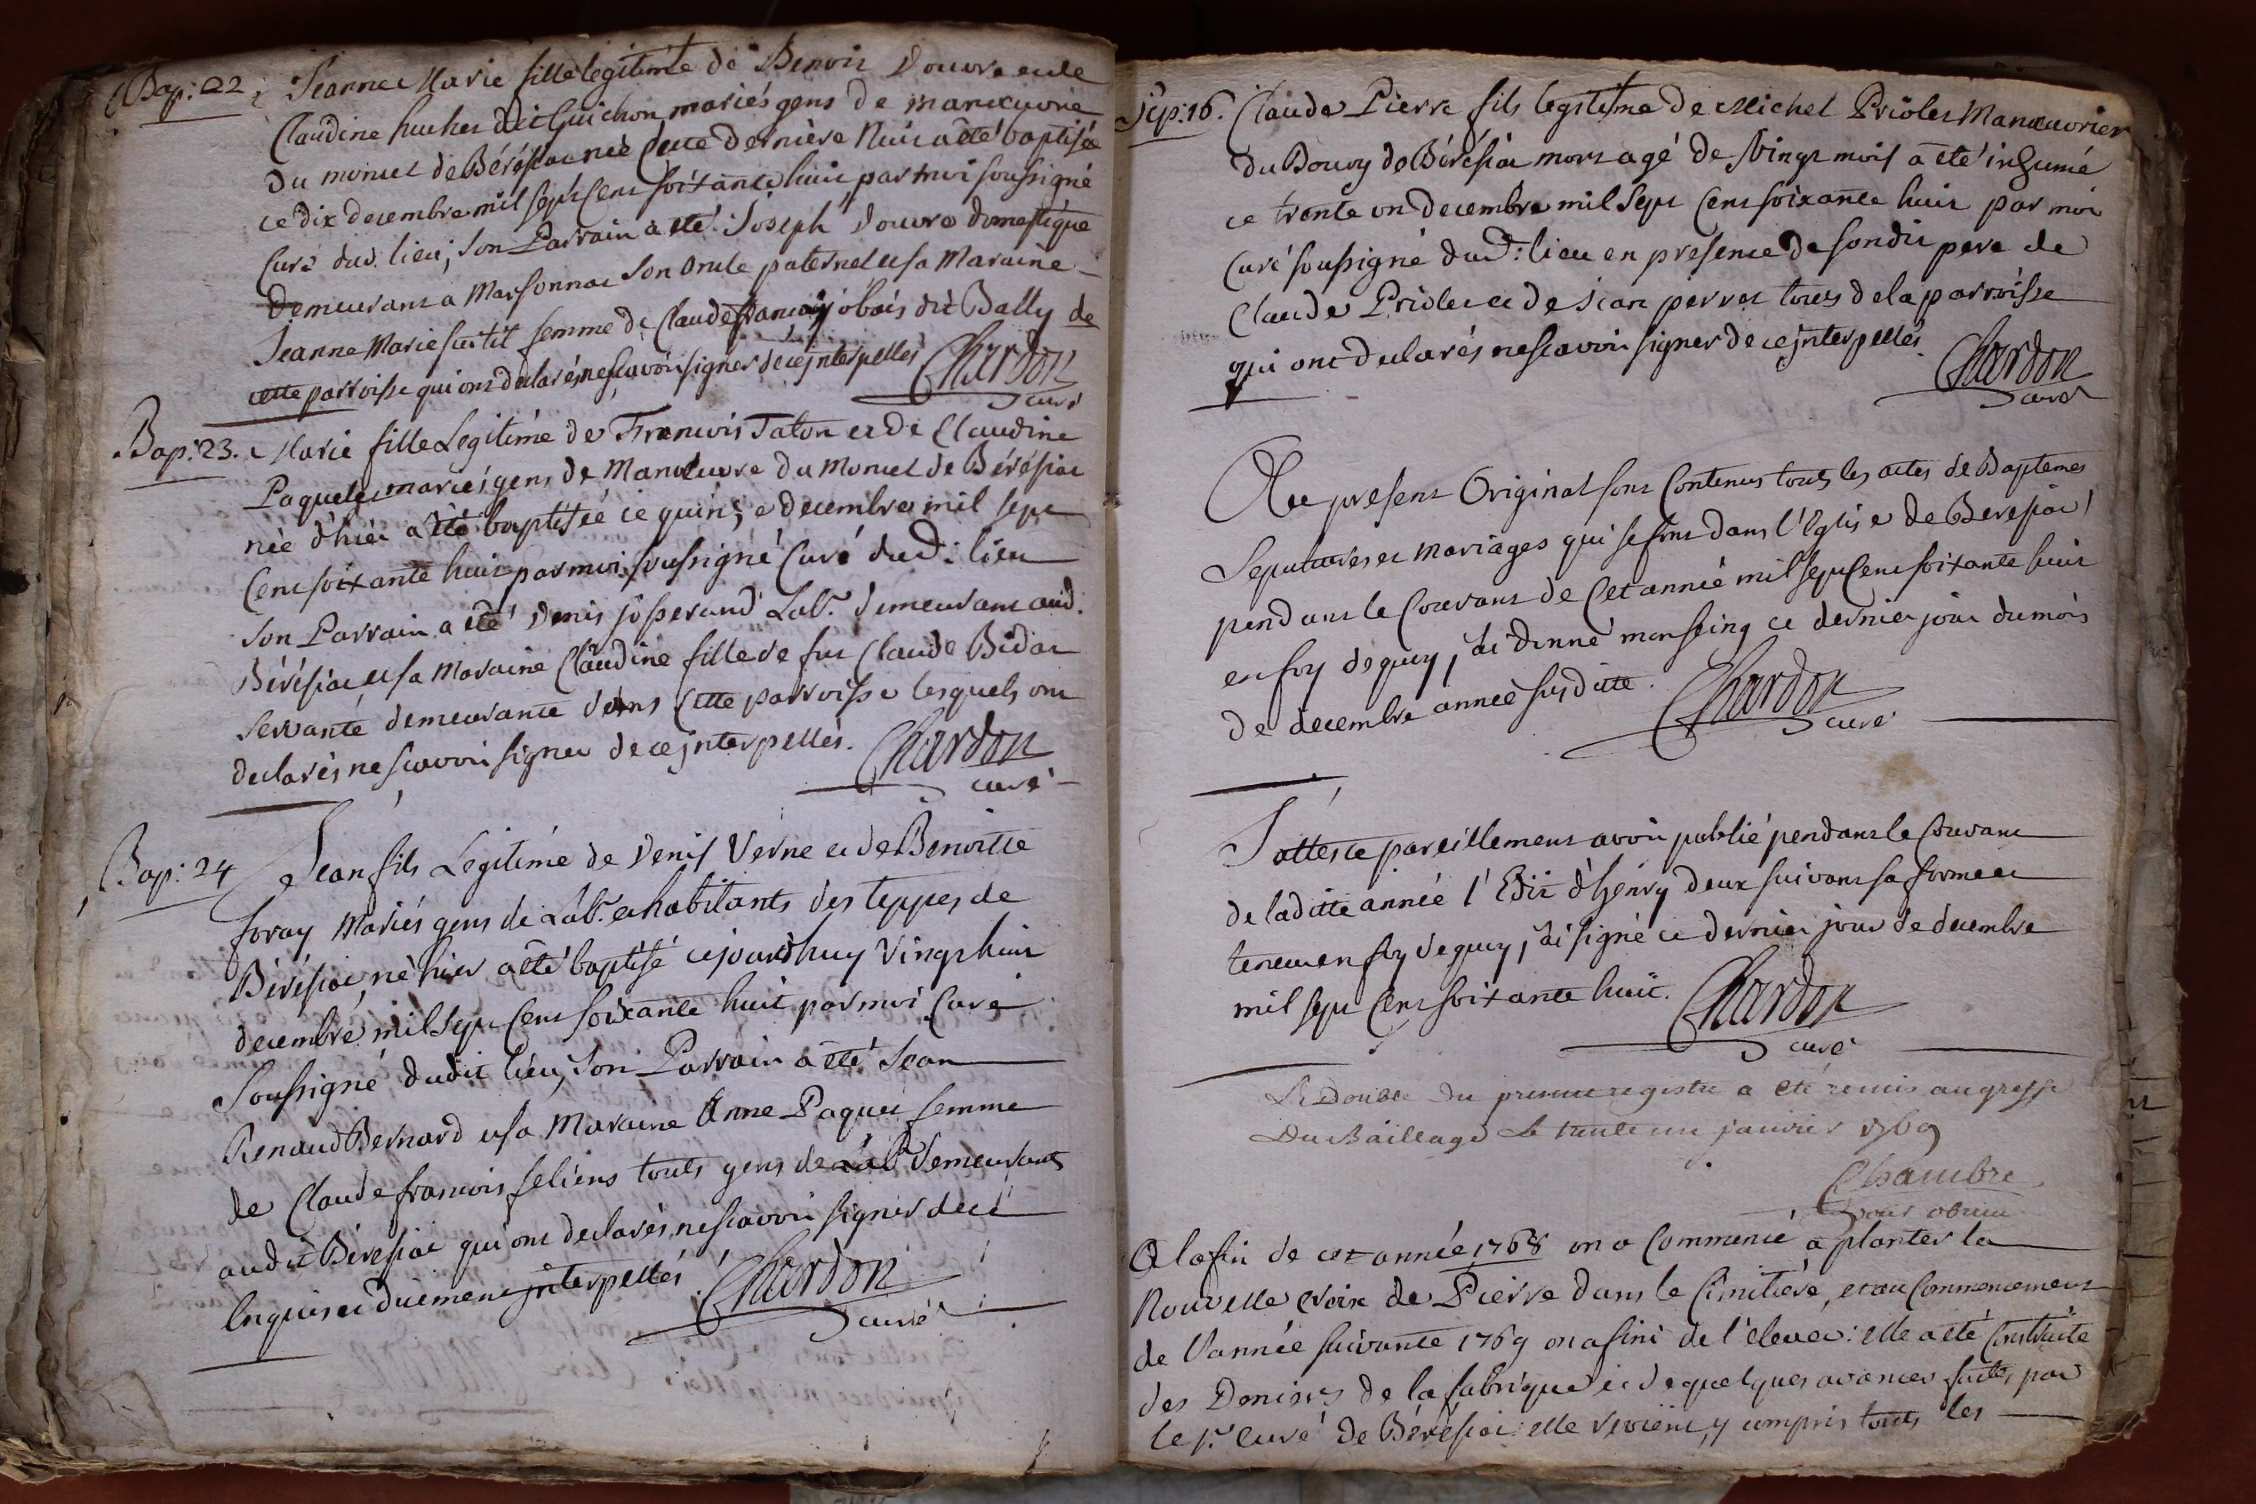 Bap: 22. Jeanne Marie fille legitime de Benoit Douvre et de
Claudine huchet dit Guichon mariés gens de manœuvrie
du moncet de Bérésiac née cette dernière Nuit a été baptisée
ce dix decembre mil sept Cent soixante huit par moi soussigné
Curé dud. lieu, son Parrain a été Joseph Douvre domestique
demeurant a Marsonnac son oncle paternel et sa Maraine
Jeanne Marie femme de Claude françois jobais dit Bally de
cette parroisse qui ont declarés ne scavoir signer de ce jnterpellés Chardon
curé
Bap: 23. Marie fille Legitime de Francois Taton et de Claudine
Paquelet mariés gens de Manœuvre du Moncet de Bérésiac
née d'hier a été baptisée ce quinze decembre mil sept
Cent soixante huit par moi soussigné Curé dud: lieu
son Parrain a été Denis josserand Labr. demeurant aud.
Bérésiac et sa Maraine Claudine fille de fut Claude Bidat
servante demeurante dans cette parroisse lesquels ont
declarés ne scavoir signer de ce jnterpellés. Chardon
curé
Bap: 24 Jean fils Legitime de Denis Verne et de Benoitte
foray Mariés gens de Labr. et habitants des teppes de
Bérésiac, né hier a été baptisé cejourdhuy vingt huit
decembre mil sept Cent soixante huit par moi Curé
Soussigné dudit lieu, son Parrain a été Jean
Renaud Bernard et sa Maraine Anne Paquet femme
de Claude francois feliens touts gens de Labr demeurants
audit Bérésiac qui ont declarés ne scavoir signer de ce
Enquis et duement jnterpellés Chardon
curé
Sep: 16. Claude Pierre fils legitime de Michel Priolet Manœuvrier
du Bourg de Bérésiac mort agé de Vingt mois a été inhumé
ce trente un decembre mil sept Cent soixante huit par moi
Curé soussigné dud: lieu en presence de sondit pere de
Claude Priolet et de jean perret touts de la parroisse
qui ont declarés ne scavoir signer de ce jnterpellés
Chardon
curé
Au present Original sont Contenus touts les actes de Baptemes
Sepultures et Mariages qui se font dans l'Eglise de Beresiac
pendant le Courant de Cet année mil sept Cent soixante huit
en foy dequoy, j'ai donné mon seing ce dernier jour du mois
de decembre année susditte. Chardon
curé
J'atteste pareillement avoir publié pendant le Courant
de laditte année l'Edit d'henry deux suivant sa forme et
teneur en foy dequoy, j'ai signé ce dernier jour de decembre
mil sept Cent soixante huit. Chardon
curé
Le Double du present registre a été remis au greffe
Du Bailliage le trente un janvier 1769
Chambre
A la fin de cet année 1768 on a Commencé a planter la
Nouvelle Croix de Pierre dans le Cimitière, et au Commencement
de l'année suivante 1769 on a fini de l'élever: elle a été Construite
des Deniers de la fabrique et de quelques avances faites par
le sr. curé de Bérésiac: elle revient, y compris touts les